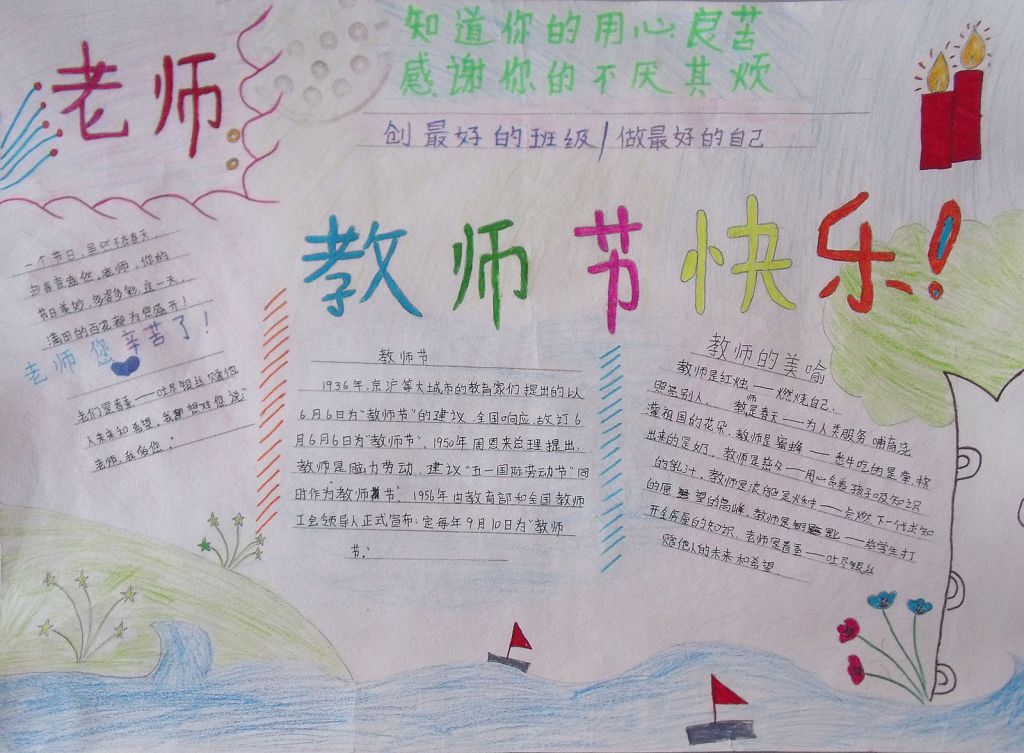 老师
知道你的用心良苦
感谢你的不厌其烦
创最好的班级/做最好的自己
教师节快乐!
一个节日,虽然不在春天,
却春意盎然,老师,你的
节日美妙,多姿多彩,这一天,
满园的百花都为您盛开!
老师您辛苦了!
老们是春蚕——吐尽银丝只赠他
人未来和希望,我想对您说:
老师,
教师节
1936年,京沪等大城市的教育家们提出的以
6月6日为"教师节"的建议.全国响应,故订6
月6月6日为"教师节", 1950年周恩来总理提出,
教师是脑力劳动,建议"五一国际劳动节"同
时作为教师节". 1956年由教育部和全国教师
工会领导人正式宣布:定每年9月10日为"教师
节."
教师的美喻
教师是红烛——燃烧自己,
照亮别人. 教师是春天——为人类服务
灌祖国的花朵,教师是蜜蜂——吃的是草,挤
出来的是奶,教师是 ——用心 着孩子吸知识
的乳汁,教师是 火种——点燃下一代求知
的愿望的高峰,教师是钥匙——给学生打
开金房屋的知识.老师是春蚕——吐尽银丝
赠他人的未来和希望